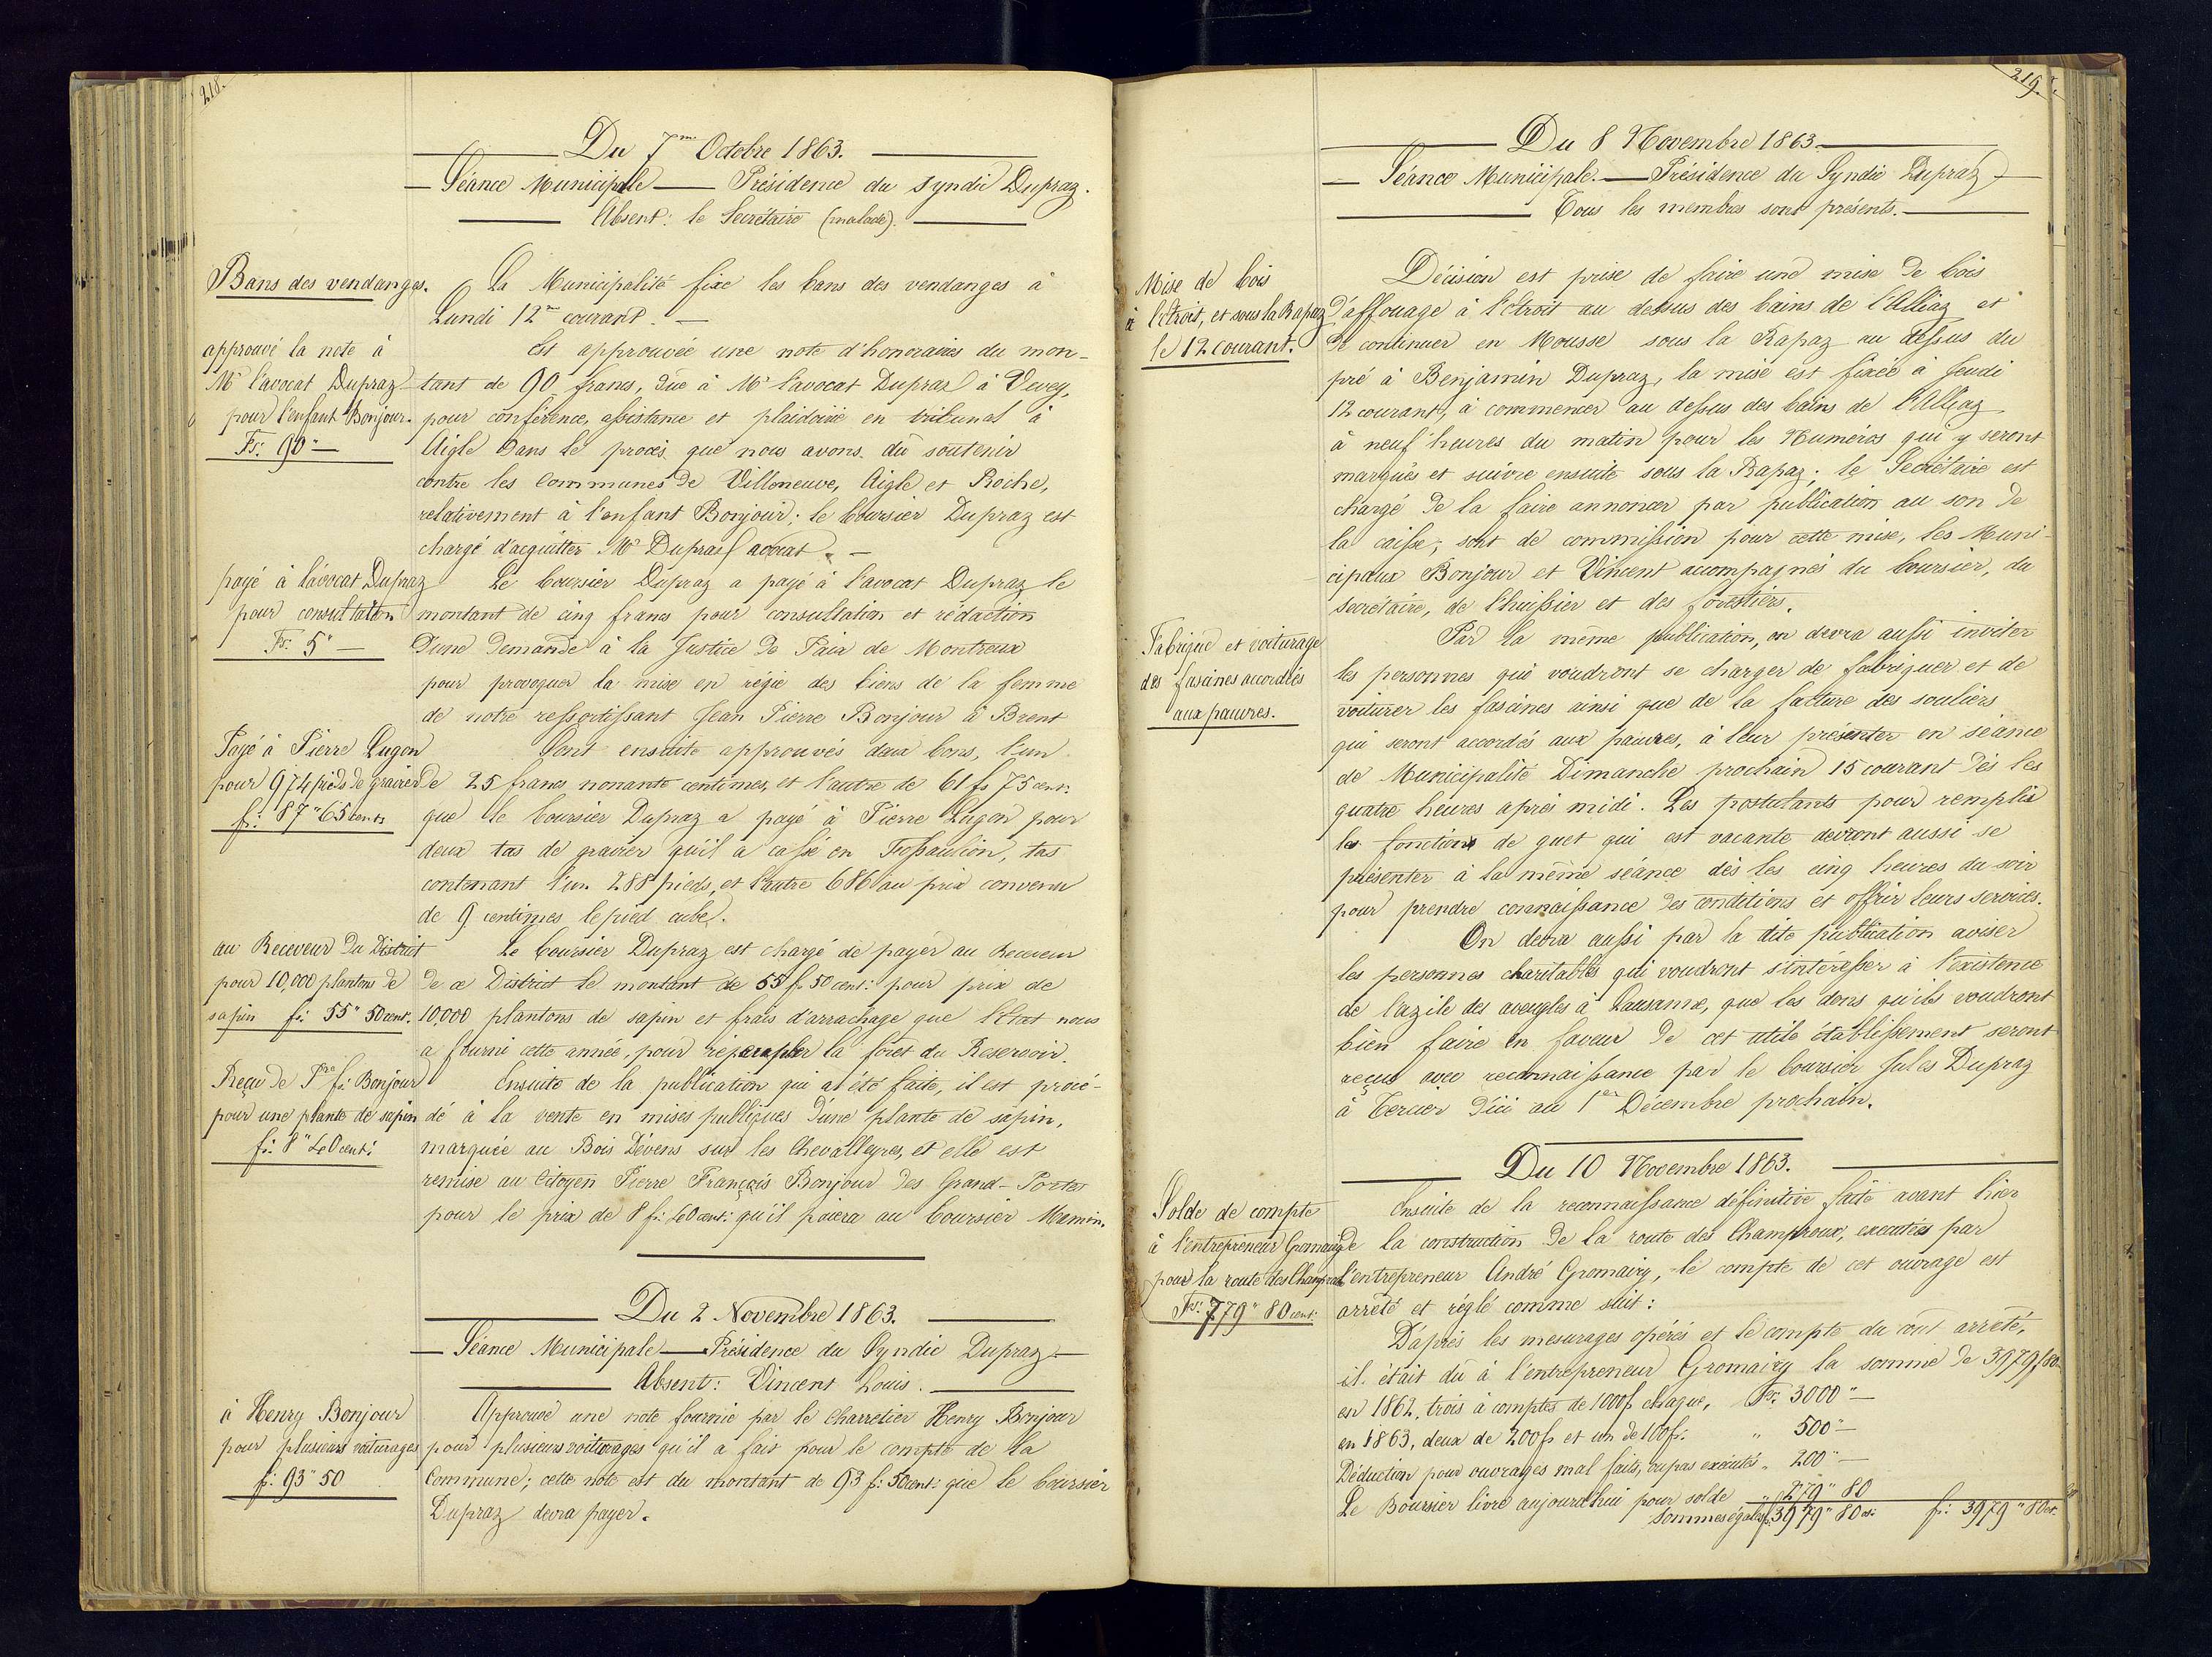 218.
Du 7me Octobre 1863.
Séance Municipale — Présidence du syndic Dupraz.
Absent: le Secrétaire (malade).
Bans des vendanges.
La Municipalité fixe les bans des vendanges à
Lundi 12me courant. —
approuvé la note à
Mr l'avocat Dupraz
pour l'enfant Bonjour.
Fs: 90"—
Est approuvée une note d'honoraires du mon-
tant de 90 francs, düe à Mr l'avocat Dupraz à Vevey,
pour conférence, assistance et plaidoirie en tribunal à
Aigle dans le procès que nous avons dû soutenir
contre les Communes de Villeneuve, Aigle et Roche,
relativement à l'enfant Bonjour; le boursier Dupraz est
chargé d'acquitter Mr Dupraz avocat. —
payé à l'avocat Dupraz
pour consultation
Fs: 5"—
Le boursier Dupraz a payé à l'avocat Dupraz le
montant de cinq francs pour consultation et rédaction
d'une demande à la Justice de Paix de Montreux
pour provoquer la mise en régie des biens de la femme
de notre ressortissant Jean Pierre Bonjour à Brent
Payé à Pierre Lugon
pour 974 pieds de gravier
fr: 87"65 cents
Sont ensuite approuvés deux bons, l'un
de 25 francs nonante centimes, et l'autre de 61 fs 75 cent:
que le boursier Dupraz a payé à Pierre Lugon pour
deux tas de gravier qu'il a cassé en Fossaulion, tas
contenant l'un 288 pieds, et l'autre 686 au prix convenu
de 9 centimes le pied cube.
au Receveur du District
pour 10,000 plantons de
sapin fr: 55" 50 cent.
Le boursier Dupraz est chargé de payer au Receveur
de ce District le montant de 55 fr 50 cent: pour prix de
10,000 plantons de sapin et frais d'arrachage que l'Etat nous
a fourni cette année, pour repeupler la forêt du Reservoir.
Reçu de Pre fs: Bonjour
pour une plante de sapin
fr: 8" 40 cent:
Ensuite de la publication qui a été faite, il est procé-
dé à la vente en mises publiques d'une plante de sapin,
marquée au Bois Dévens sur les Chevalleyres, et elle est
remise au Citoyen Pierre François Bonjour des Grand-Portes
pour le prix de 8 fr: 40 cent: qu'il paiera au boursier Mamin.
Du 2 Novembre 1863.
Séance Municipale — Présidence du Syndic Dupraz —
Absent: Vincent Louis.
à Henry Bonjour
pour plusieurs voiturages
fr: 93" 50
Approuvé une note fournie par le charretier Henry Bonjour
pour plusieurs voiturages qu'il a fait pour le compte de la
Commune; cette note est du montant de 93 fr: 50 cent: que le boursier
Dupraz devra payer.
219.
Du 8 Novembre 1863.
Séance Municipale. — Présidence du Syndic Dupraz —
Tous les membres sont présents.
Mise de bois
à l'Etroit, et sous la Rapaz
le 12 courant.
Décision est prise de faire une mise de bois
d'affouage à l'Etroit au dessus des bains de l'Alliaz et
de continuer en Mousse sous la Rapaz au dessus du
pré à Benjamin Dupraz, la mise est fixée à Jeudi
12 courant, à commencer au dessus des bains de l'Alliaz
à neuf heures du matin pour les Numéros qui y seront
marqués et suivre ensuite sous la Rapaz; le Secrétaire est
chargé de la faire annoncer par publication au son de
la caisse; sont de commission pour cette mise, les Muni-
cipaux Bonjour et Vincent accompagnés du boursier, du
secrétaire, de l'huissier et des forestiers.
Fabrique et voiturage
des fascines accordés
aux pauvres.
Par la même publication, on devra aussi inviter
les personnes qui voudront se charger de fabriquer et de
voiturer les fascines ainsi que de la facture des souliers
qui seront accordés aux pauvres, à leur présenter en séance
de Municipalité Dimanche prochain 15 courant dès les
quatre heures après midi. Les postulants pour remplir
les fonctions de guet qui est vacante devront aussi se
présenter à la même séance dès les cinq heures du soir
pour prendre connaissance des conditions et offrir leurs services.
On devra aussi par la dite publication aviser
les personnes charitables qui voudront s'intéresser à l'existence
de l'azile des aveugles à Lausanne, que les dons qu'ils voudront
bien faire en faveur de cet utile établissement seront
reçus avec reconnaissance par le boursier Jules Dupraz
à Tercier d'ici au 1er Décembre prochain.
Du 10 Novembre 1863.
Solde de compte
à l'entrepreneur Gromairy
pour la route des Champroux
Fr: 779" 80 cent:
Ensuite de la reconnaissance définitive faite avant hier
de la construction de la route des Champroux, executées par
l'entrepreneur André Gromairy, le compte de cet ouvrage est
arrêté et réglé comme suit:
D'après les mesurages opérés et le compte du coût arrêté,
il était dû à l'entrepreneur Gromairy la somme de 3979f80
en 1862, trois à comptes de 1000f chaque, Fr: 3000"—
en 1863, deux de 200fs et un de 100fr. " 500"—
Déduction pour ouvrages mal faits, ou pas executés " 200"—
Le Boursier livre aujourd'hui pour solde " 279" 80
Sommes égales f: 3979" 80 ct: fr: 3979" 80 ct.